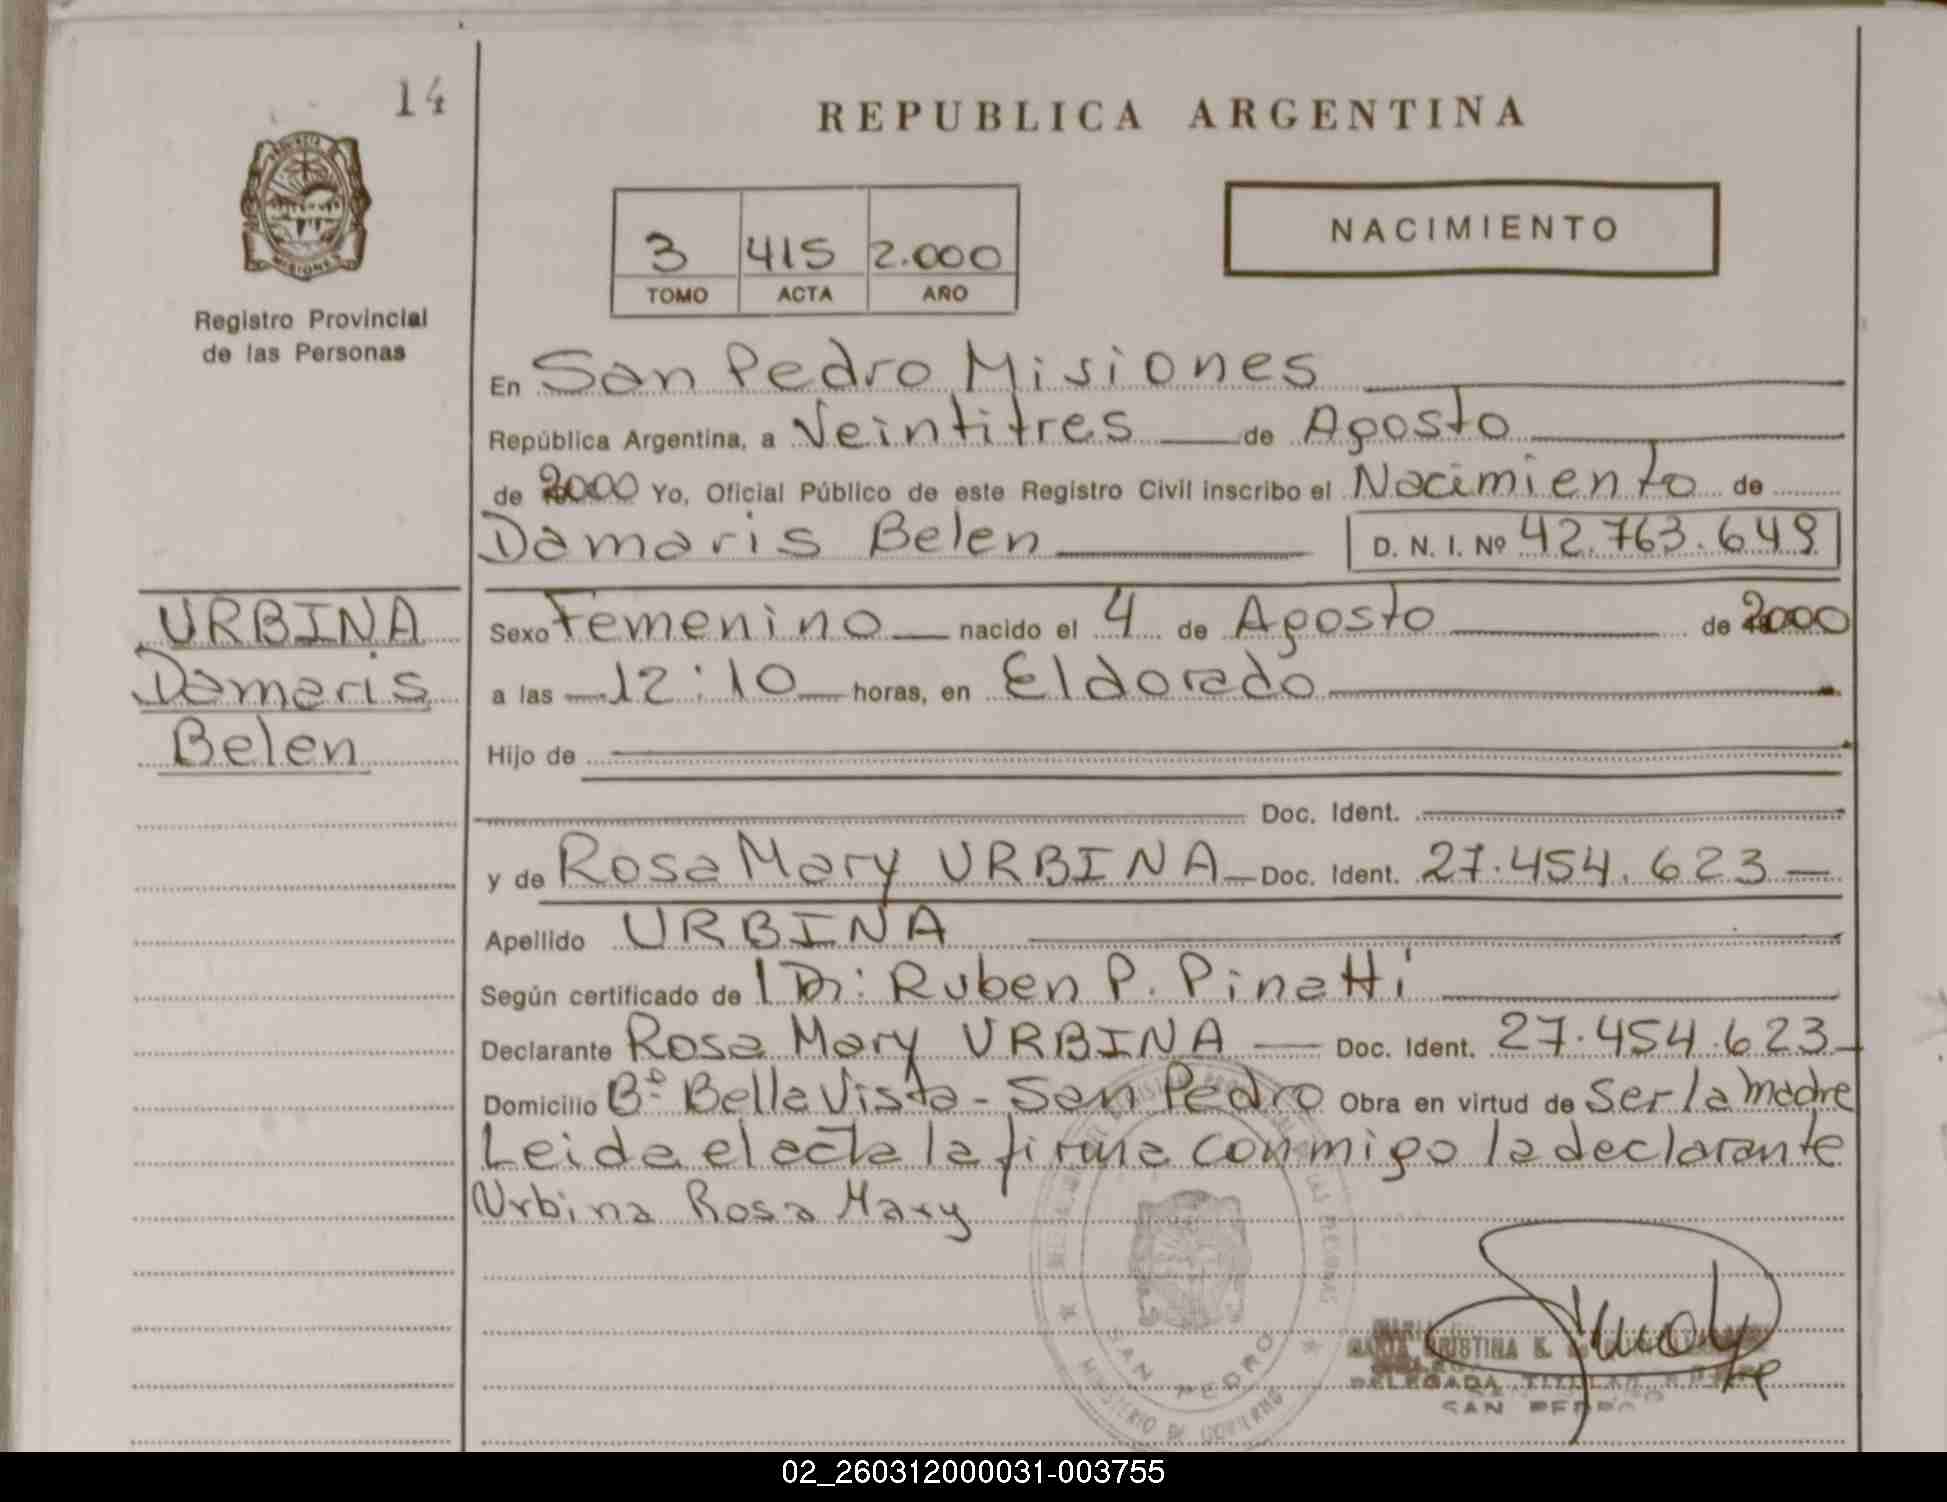 14
REPUBLICA ARGENTINA
NACIMIENTO
3 415 2.000
TOMO ACTA AÑO
MISIONES
Registro Provincial
de las Personas
En San Pedro Misiones
República Argentina, a Veintitres de Agosto
de 2000 Yo, Oficial Público de este Registro Civil inscribo el Nacimiento de
Damaris Belen D. N. I. Nº 42.763.649
URBINA
Damaris
Belen
Sexo Femenino nacido el 4 de Agosto de 2000
a las 12:10 horas, en Eldorado
Hijo de
Doc. Ident.
y de Rosa Mary URBINA Doc. Ident. 27.454.623
Apellido URBINA
Según certificado de Dr: Ruben P. Pinatti
Declarante Rosa Mary URBINA Doc. Ident. 27.454.623
Domicilio Bº Bella Vista - San Pedro Obra en virtud de Ser la madre
Leida el acta la firma conmigo la declarante
Urbina Rosa Mary
LAS PERSONAS
SAN PEDRO
MINISTERIO DE GOBIERNO
MARIA CRISTINA K.
DELEGADA TITULAR
SAN PEDRO
02_260312000031-003755